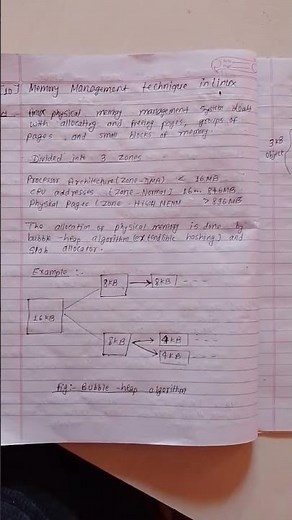 10 Memory Management technique in linux
Linux physical memory management system deals
with allocating and freeing pages, groups of
pages, and small blocks of memory
Divided into 3 zones
Processor Architecture (Zone-DMA) < 16MB,
CPU addresses (Zone-Normal) 16 896MB
Physical Pages (Zone HIGHMEM > 896MB
The allocation of physical memory is done by
bubble-heap algorithm (extendible hashing) and
slab allocator.
Example :-
8KB 8KB
16KB
8KB 4KB
4KB
fig:- Bubble-heap algorithm
3KB
object